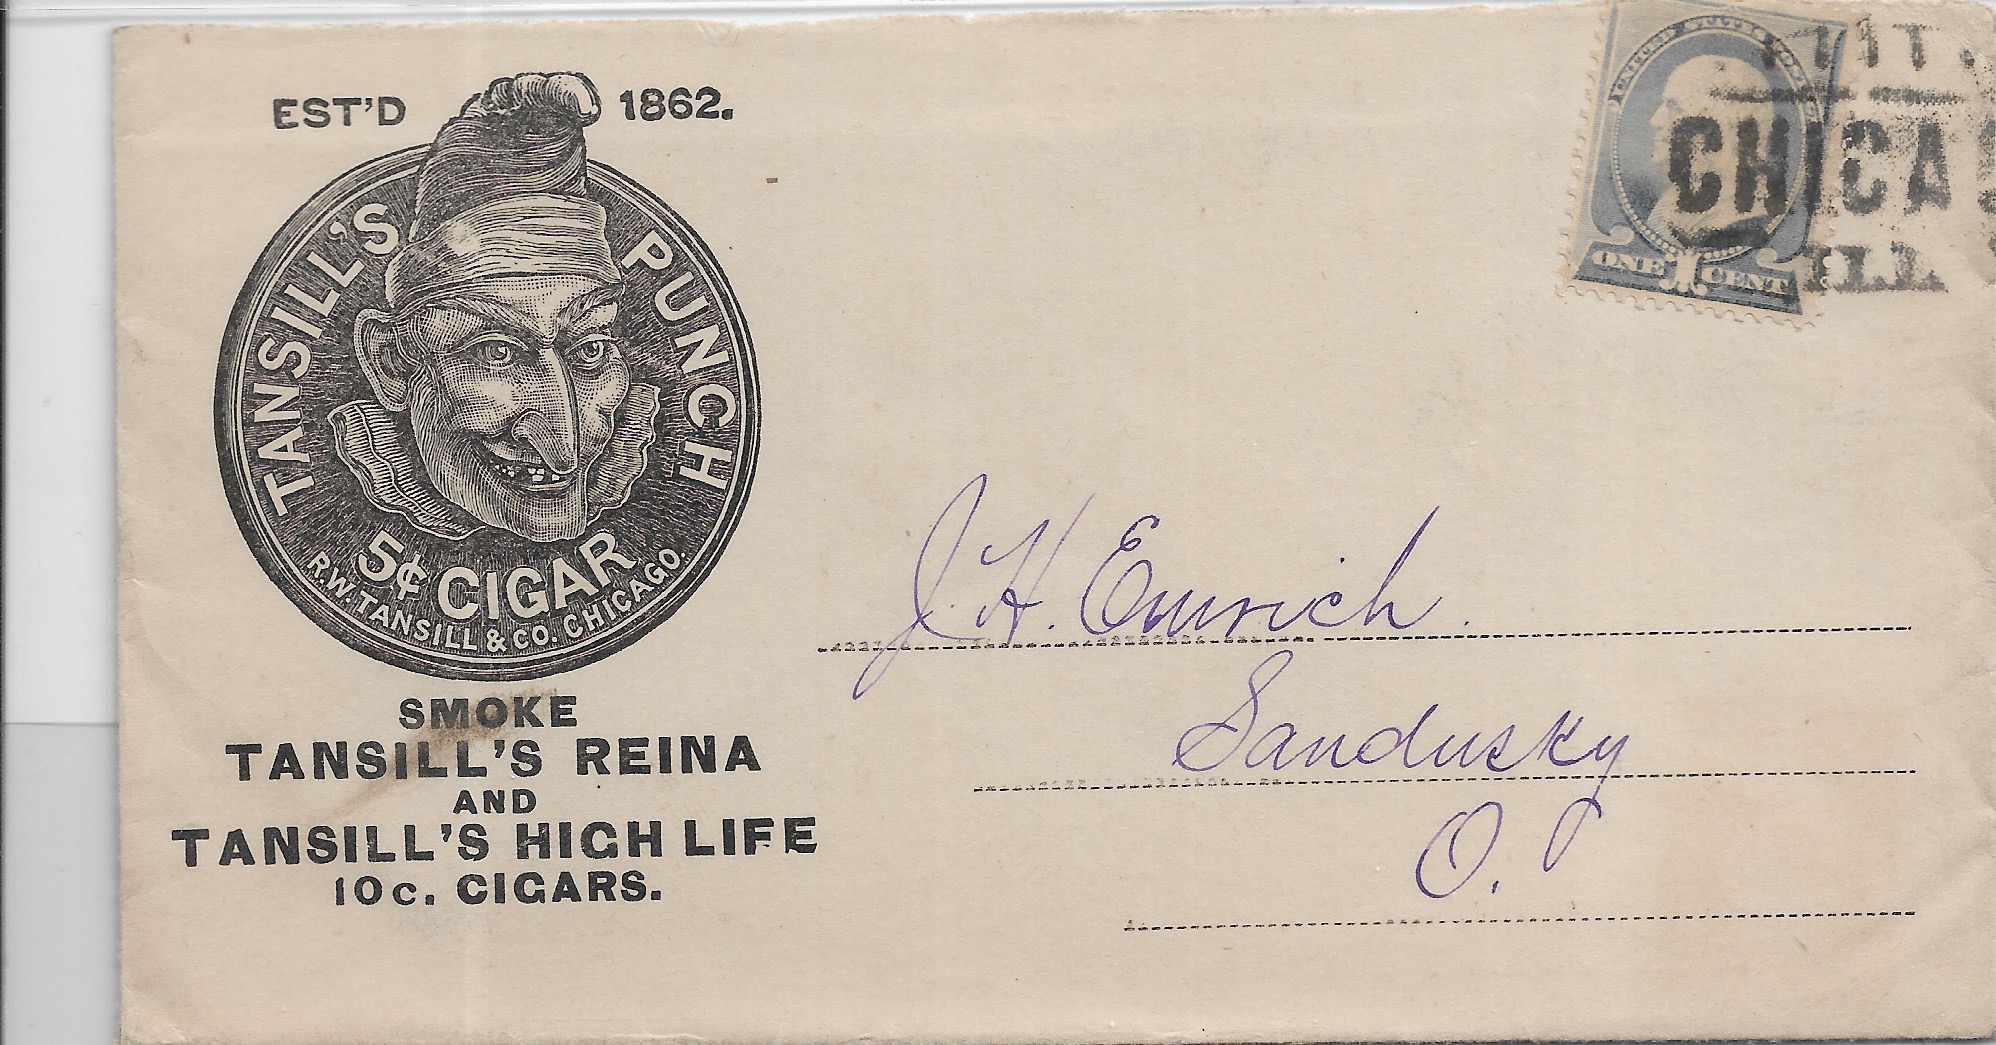 EST'D 1862.
TANSILL'S PUNCH
5¢ CIGAR
R.W. TANSILL & CO. CHICAGO.
SMOKE
TANSILL'S REINA
AND
TANSILL'S HIGH LIFE
10c. CIGARS.
UNITED STATES
ONE 1 CENT
CHICA
ILL
J. H. Emrich.
Sandusky
O.